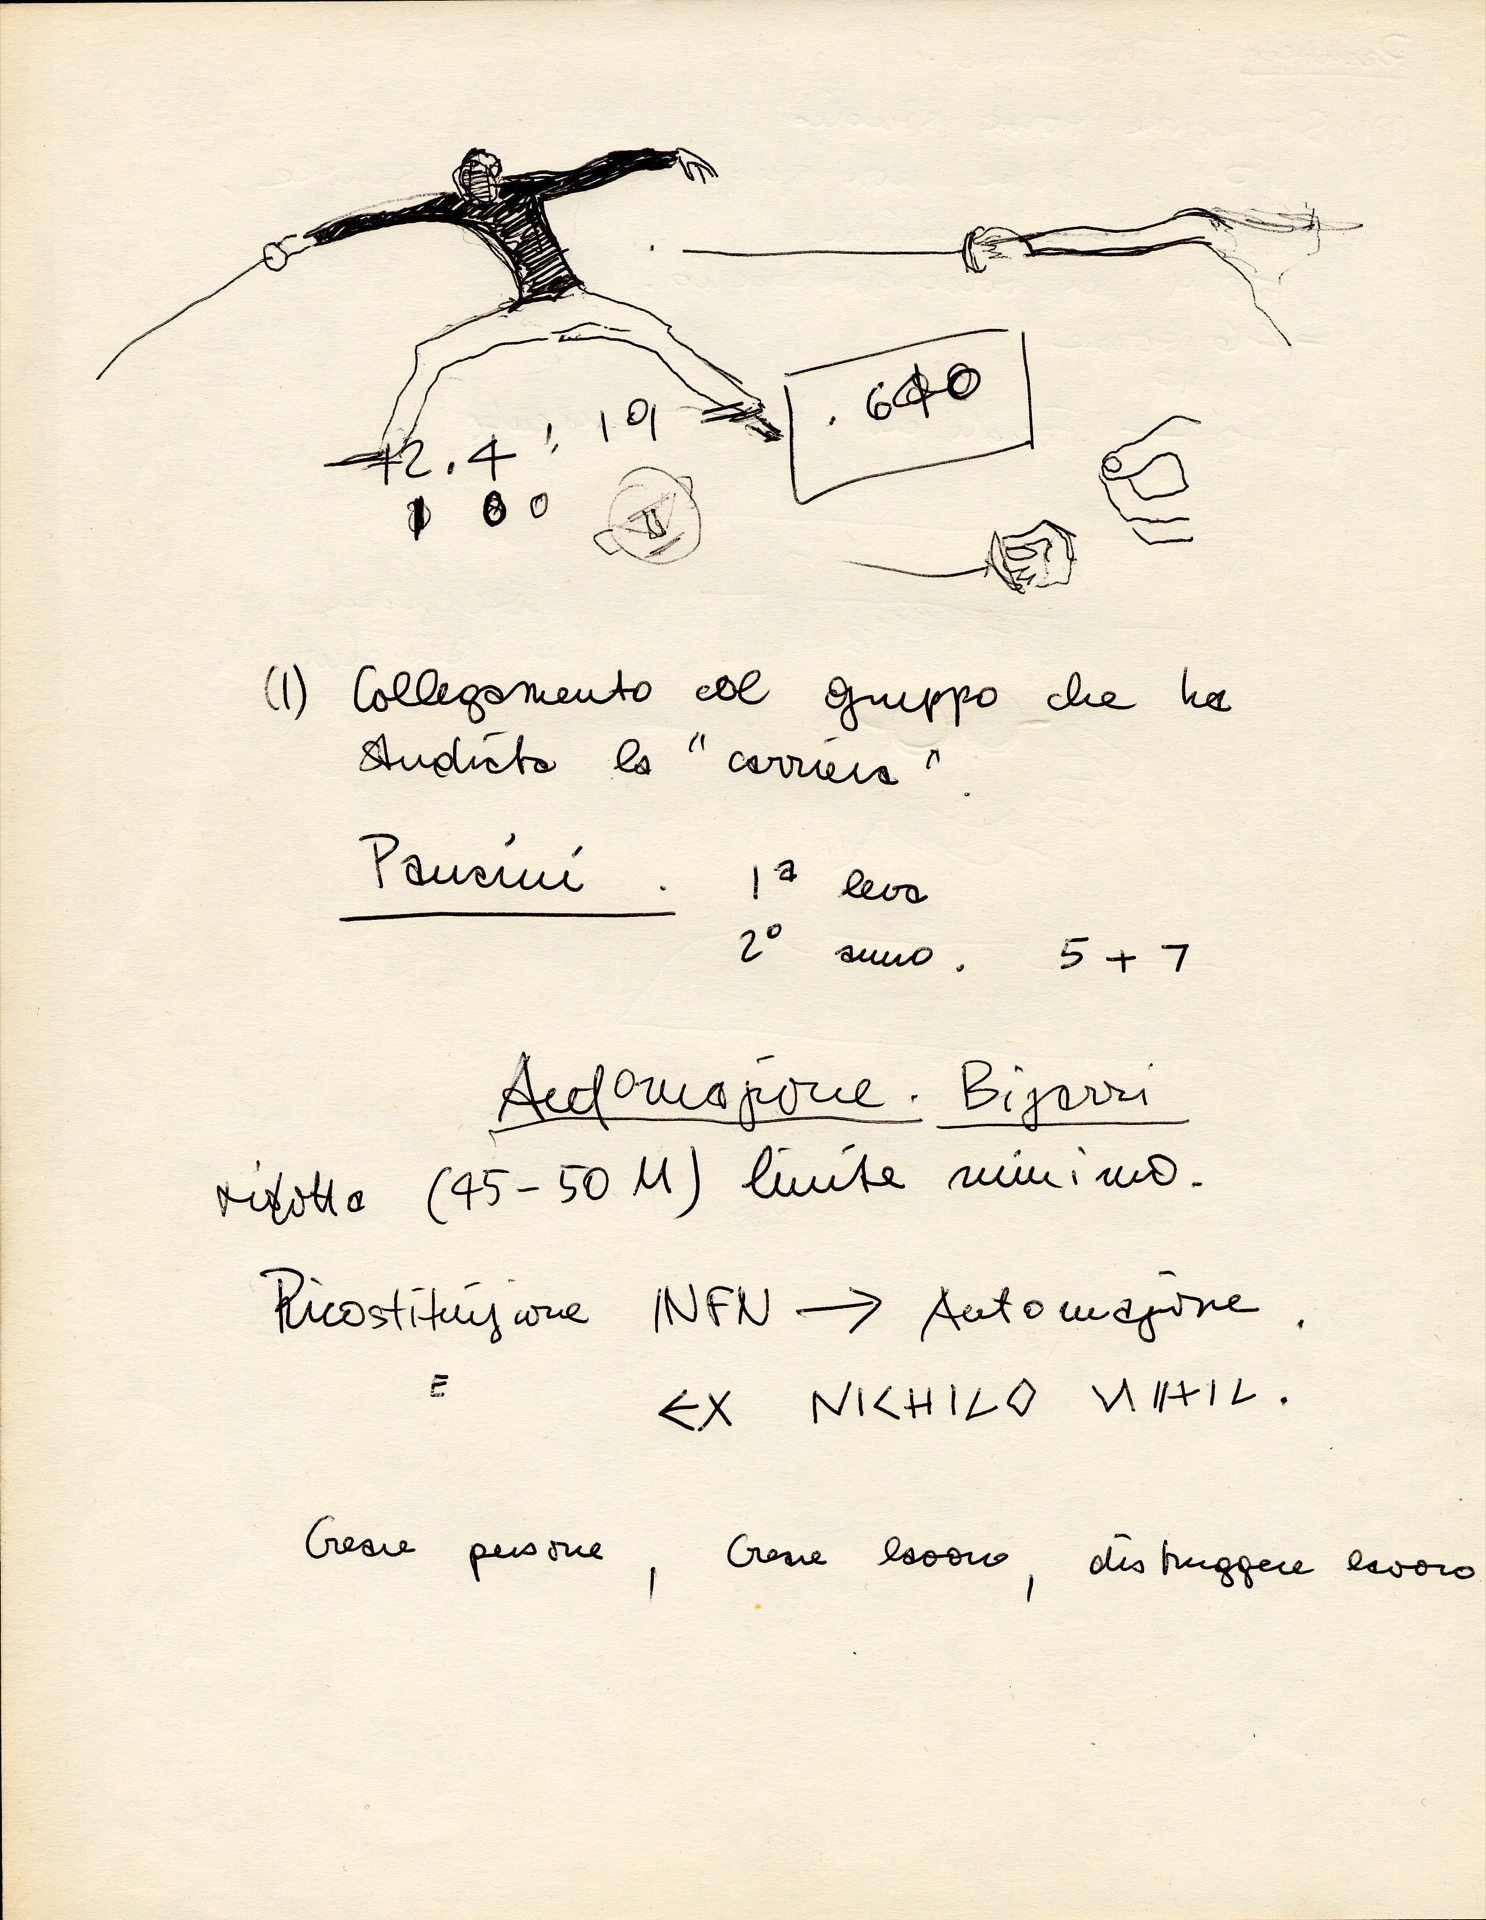 . 640
12.4 ; 19
1 00
(1) Collegamento col gruppo che ha
studiato la "carriera".
Pancini . 1ª leva
2° anno. 5 + 7
Automazione. Bizarri
ridotta (45-50 M) limite minimo.
Ricostituzione INFN → Automazione.
E EX NICHILO NIHIL.
Creare persone, Creare lavoro, distruggere lavoro